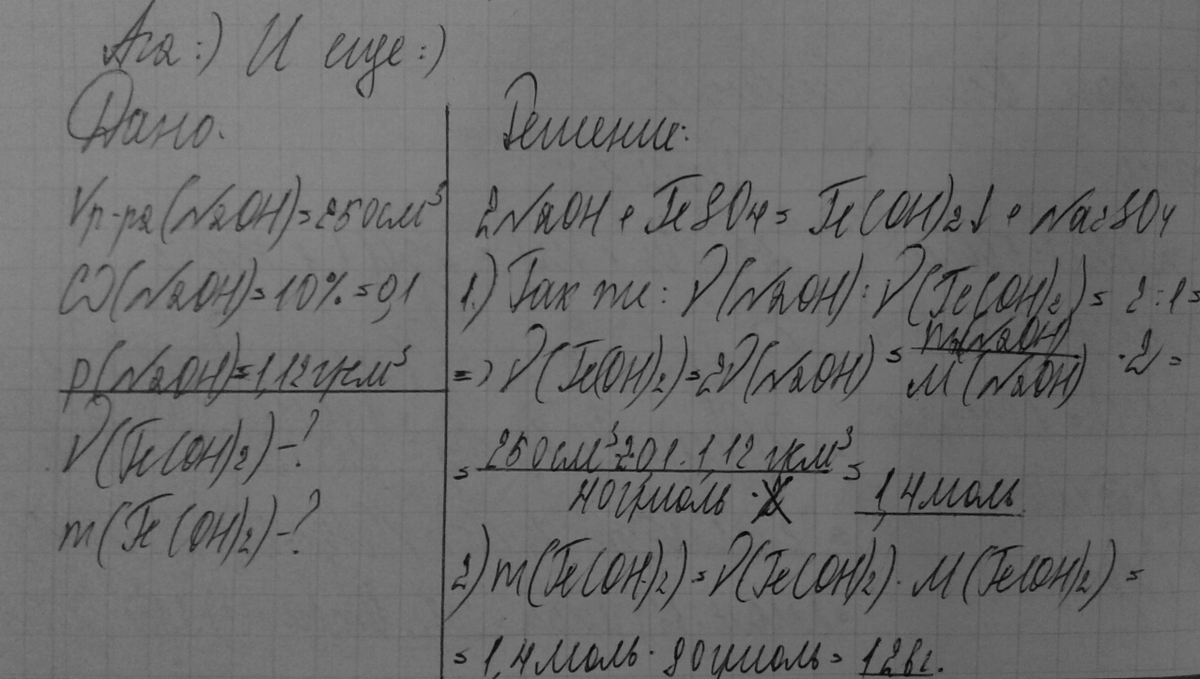 Ага :) И еще :)
Дано.
Vр-ра(NaOH)=250см³
ω(NaOH)=10%=0,1
ρ(NaOH)=1,12г/см³
ν(Fe(OH)₂)-?
m(Fe(OH)₂)-?
Решение:
2NaOH + FeSO₄ = Fe(OH)₂↓ + Na₂SO₄
1.) Так же: ν(NaOH):ν(Fe(OH)₂)= 2:1 =
=> ν(Fe(OH)₂)=2ν(NaOH) = m(NaOH)/M(NaOH) · 2 =
= 250см³·2·0,1·1,12г/см³ / 40г/моль = 1,4моль
2) m(Fe(OH)₂)=ν(Fe(OH)₂)·M(Fe(OH)₂) =
= 1,4моль · 90г/моль = 126г.